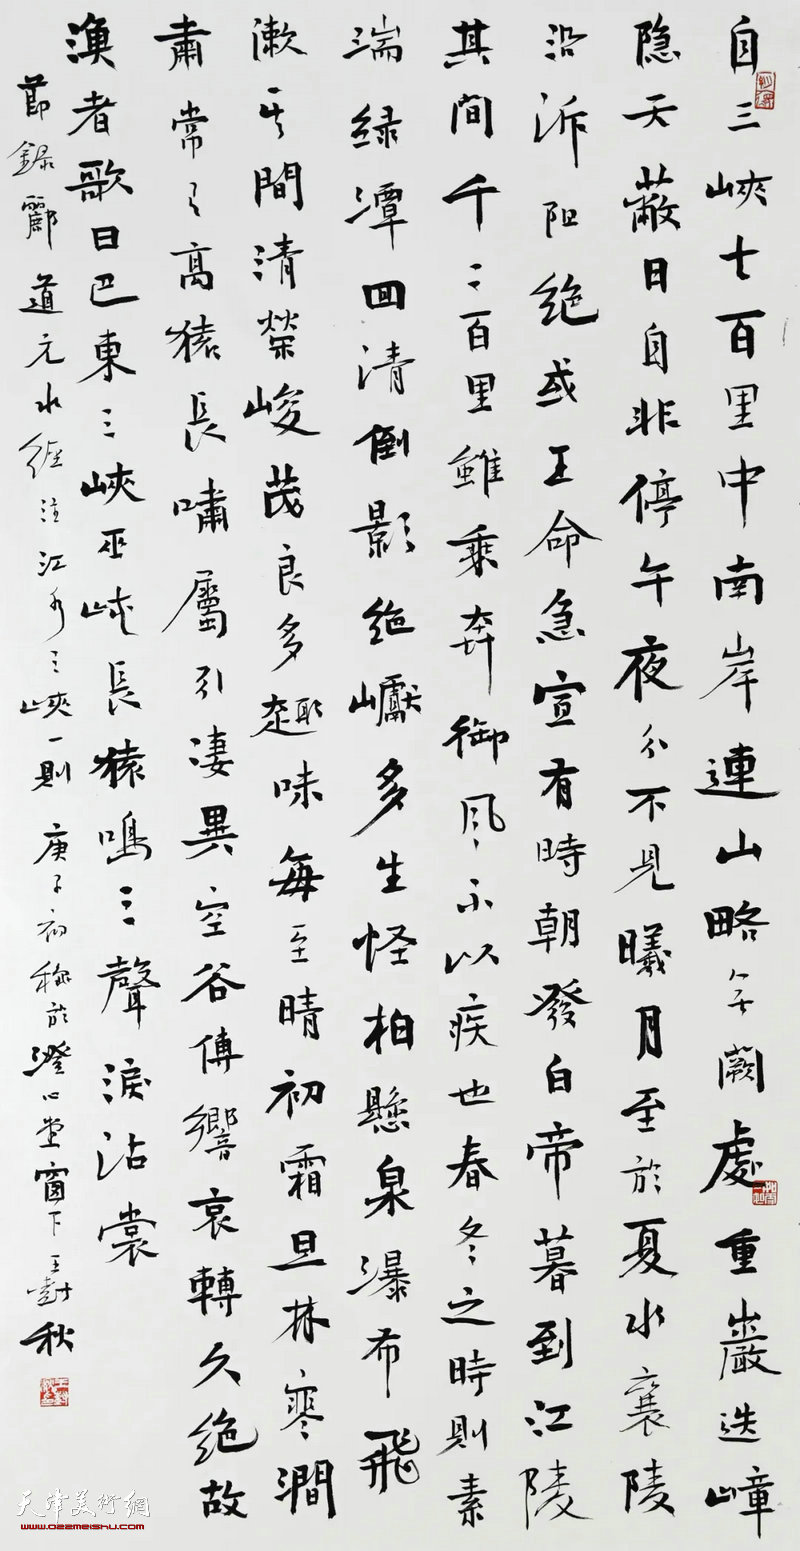 自三峽七百里中南岸連山略無闕處重巖迭嶂
隐天蔽日自非停午夜分不見曦月至於夏水襄陵
沿泝阻绝或王命急宣有時朝發白帝暮到江陵
其间千二百里雖乘奔御風不以疾也春冬之時則素
湍緑潭回清倒影绝巘多生怪柏懸泉瀑布飛
漱其間清榮峻茂良多趣味每至晴初霜旦林寒澗
肅常有高猿長嘯屬引凄異空谷傳響哀轉久绝故
漁者歌曰巴東三峽巫峡長猿鳴三聲淚沾裳
節録酈道元水經注江水三峽一則 庚子初穐於澄心堂窗下王尌秋
天津美術網
www.022meishu.com